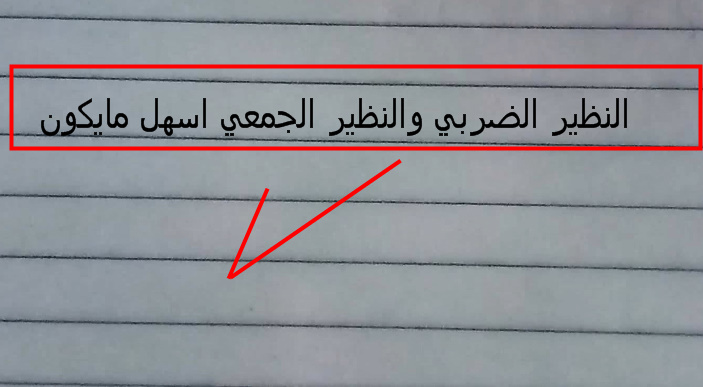 النظير الضربي والنظير الجمعي اسهل مايكون